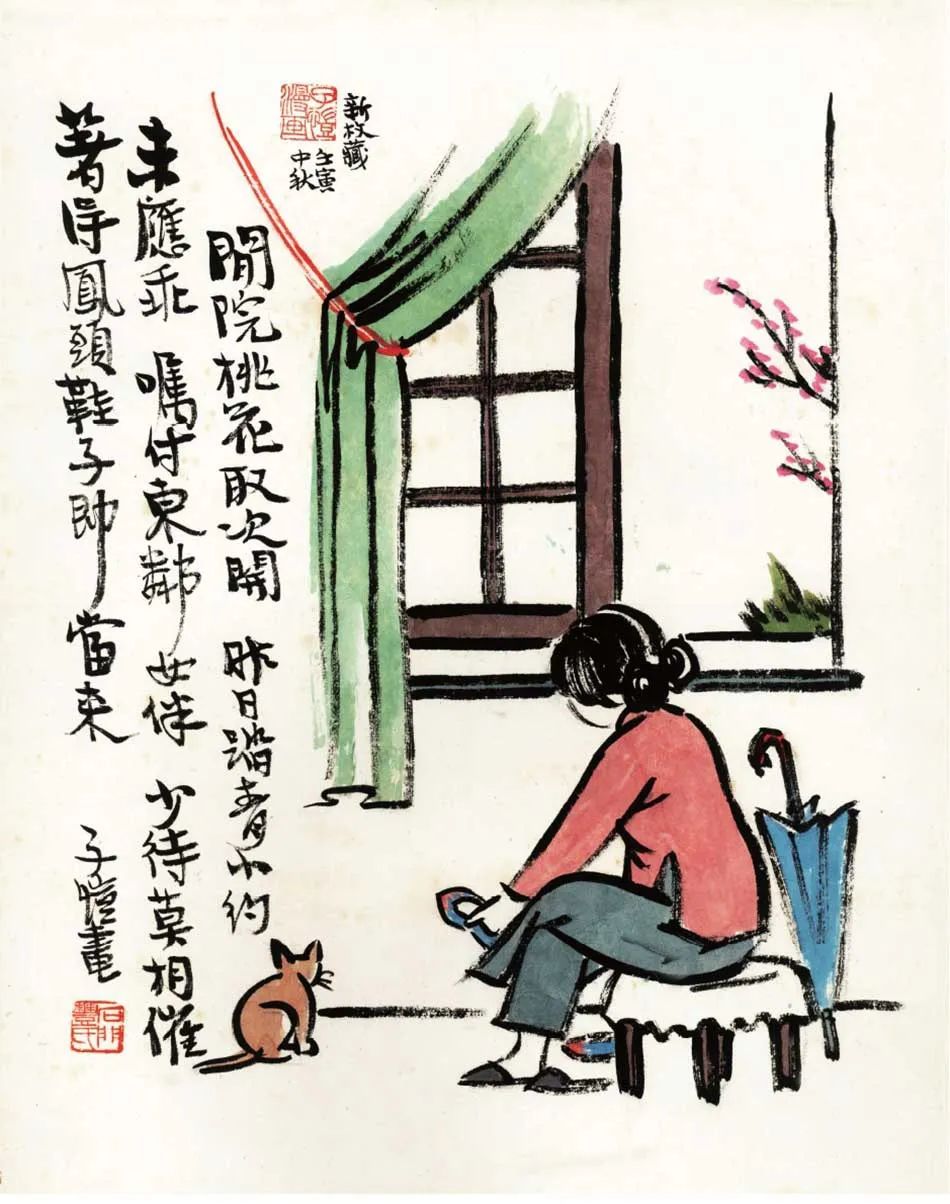 閒院桃花取次開　昨日踏青小約
未應乖　囑付東鄰女伴　少待莫相催
著得鳳頭鞋子即當來
子愷畫
新枚藏
壬寅
中秋
子愷
漫画
石門
豐氏